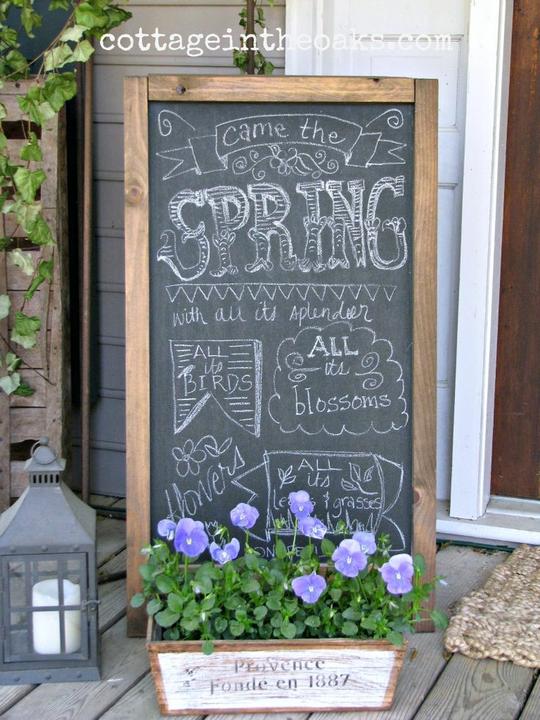 cottageintheoaks.com
came the
SPRING
with all its splendor
ALL
its
BIRDS
ALL
its
blossoms
flowers
ALL
its
grasses
Provence
Fondé en 1887